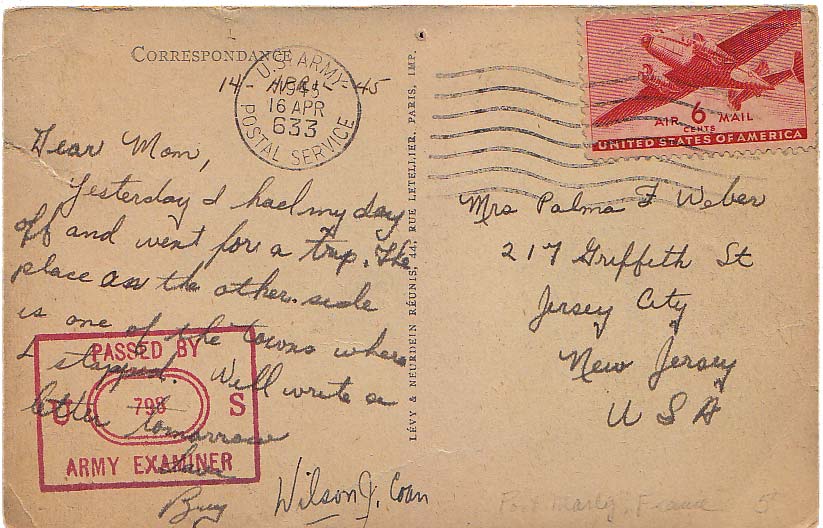 CORRESPONDANCE
14 - APR - 45
U.S. ARMY
1945
16 APR
633
POSTAL SERVICE
Dear Mom,
Yesterday I had my day
off and went for a trip. The
place on the other side
is one of the towns where
I stopped. Will write a
letter tomorrow
Love
PASSED BY
U 798 S
ARMY EXAMINER
Wilson J. Coan
LÉVY & NEURDEIN RÉUNIS, 44, RUE LETELLIER, PARIS, IMP.
AIR 6 MAIL
CENTS
UNITED STATES OF AMERICA
Mrs Palma F Weber
217 Griffith St
Jersey City
New Jersey
U S A
Port Marly, France 5